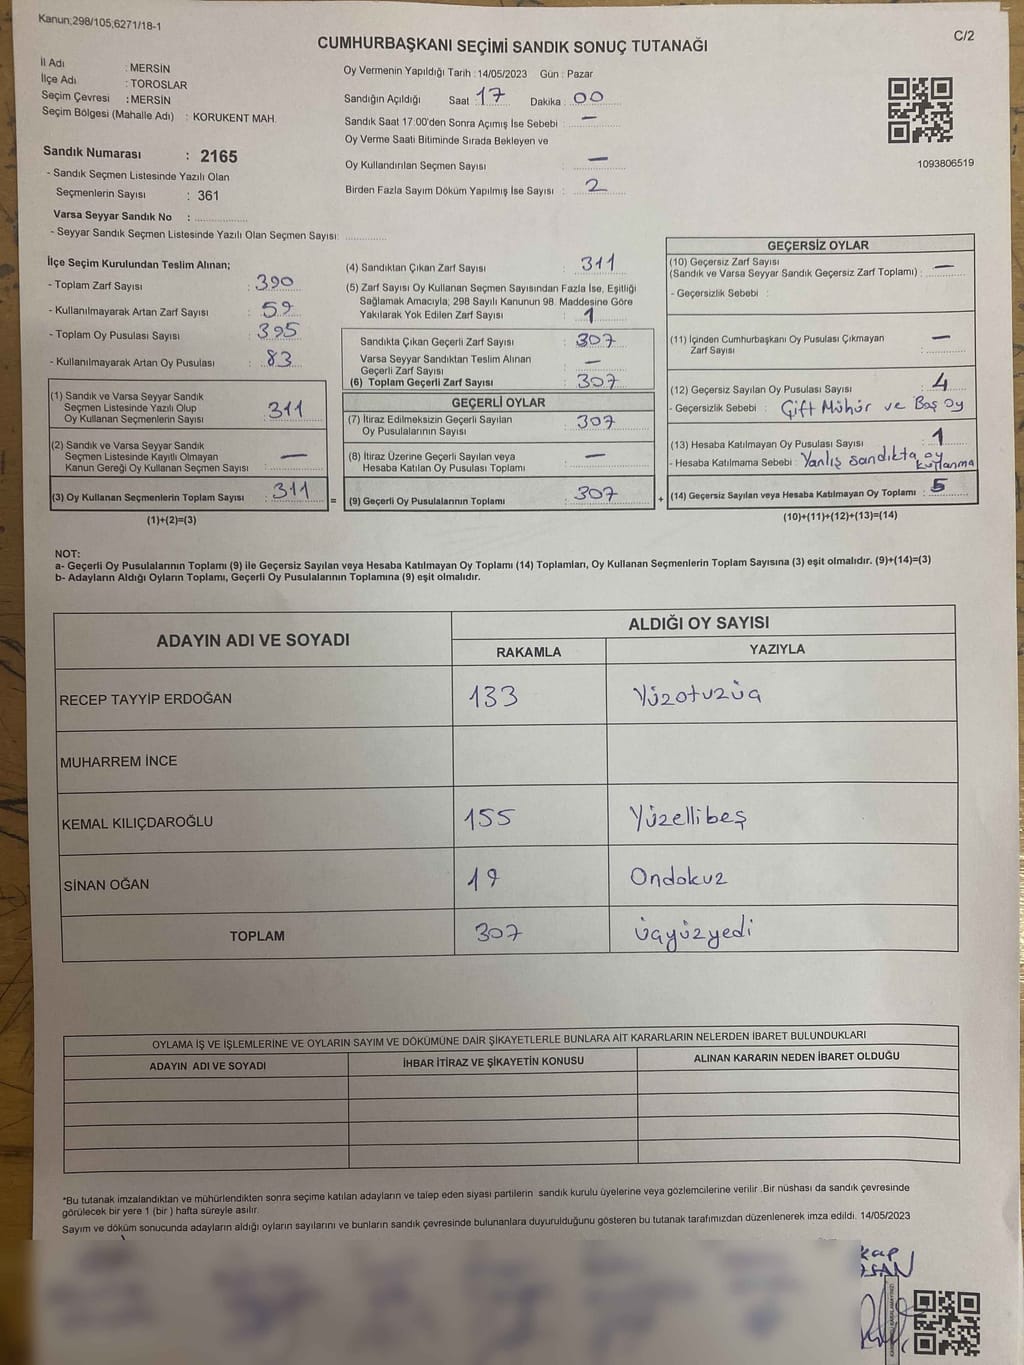 Kanun;298/105;6271/18-1
C/2
CUMHURBAŞKANI SEÇİMİ SANDIK SONUÇ TUTANAĞI
İl Adı : MERSİN
İlçe Adı : TOROSLAR
Seçim Çevresi : MERSİN
Seçim Bölgesi (Mahalle Adı) : KORUKENT MAH.
Sandık Numarası : 2165
- Sandık Seçmen Listesinde Yazılı Olan
Seçmenlerin Sayısı : 361
Varsa Seyyar Sandık No :
- Seyyar Sandık Seçmen Listesinde Yazılı Olan Seçmen Sayısı:
Oy Vermenin Yapıldığı Tarih : 14/05/2023 Gün : Pazar
Sandığın Açıldığı Saat 17 Dakika 00
Sandık Saat 17:00'den Sonra Açımış İse Sebebi : —
Oy Verme Saati Bitiminde Sırada Bekleyen ve
Oy Kullandırılan Seçmen Sayısı : —
Birden Fazla Sayım Döküm Yapılmış İse Sayısı : 2
1093806519
İlçe Seçim Kurulundan Teslim Alınan;
- Toplam Zarf Sayısı : 390
- Kullanılmayarak Artan Zarf Sayısı : 59
- Toplam Oy Pusulası Sayısı : 395
- Kullanılmayarak Artan Oy Pusulası : 83
(1) Sandık ve Varsa Seyyar Sandık
Seçmen Listesinde Yazılı Olup
Oy Kullanan Seçmenlerin Sayısı : 311
(2) Sandık ve Varsa Seyyar Sandık
Seçmen Listesinde Kayıtlı Olmayan
Kanun Gereği Oy Kullanan Seçmen Sayısı : —
(3) Oy Kullanan Seçmenlerin Toplam Sayısı : 311 =
(1)+(2)=(3)
(4) Sandıktan Çıkan Zarf Sayısı : 311
(5) Zarf Sayısı Oy Kullanan Seçmen Sayısından Fazla İse, Eşitliği
Sağlamak Amacıyla; 298 Sayılı Kanunun 98. Maddesine Göre
Yakılarak Yok Edilen Zarf Sayısı : 1
Sandıkta Çıkan Geçerli Zarf Sayısı : 307
Varsa Seyyar Sandıktan Teslim Alınan
Geçerli Zarf Sayısı : —
(6) Toplam Geçerli Zarf Sayısı : 307
GEÇERLİ OYLAR
(7) İtiraz Edilmeksizin Geçerli Sayılan
Oy Pusulalarının Sayısı : 307
(8) İtiraz Üzerine Geçerli Sayılan veya
Hesaba Katılan Oy Pusulası Toplamı : —
(9) Geçerli Oy Pusulalarının Toplamı : 307 +
GEÇERSİZ OYLAR
(10) Geçersiz Zarf Sayısı
(Sandık ve Varsa Seyyar Sandık Geçersiz Zarf Toplamı) : —
- Geçersizlik Sebebi :
(11) İçinden Cumhurbaşkanı Oy Pusulası Çıkmayan
Zarf Sayısı : —
(12) Geçersiz Sayılan Oy Pusulası Sayısı : 4
- Geçersizlik Sebebi : Çift Mühür ve Boş oy
(13) Hesaba Katılmayan Oy Pusulası Sayısı : 1
- Hesaba Katılmama Sebebi : Yanlış sandıkta oy
kullanma
(14) Geçersiz Sayılan veya Hesaba Katılmayan Oy Toplamı : 5
(10)+(11)+(12)+(13)=(14)
NOT:
a- Geçerli Oy Pusulalarının Toplamı (9) ile Geçersiz Sayılan veya Hesaba Katılmayan Oy Toplamı (14) Toplamları, Oy Kullanan Seçmenlerin Toplam Sayısına (3) eşit olmalıdır. (9)+(14)=(3)
b- Adayların Aldığı Oyların Toplamı, Geçerli Oy Pusulalarının Toplamına (9) eşit olmalıdır.
ADAYIN ADI VE SOYADI
ALDIĞI OY SAYISI
RAKAMLA YAZIYLA
RECEP TAYYİP ERDOĞAN 133 Yüzotuzüç
MUHARREM İNCE
KEMAL KILIÇDAROĞLU 155 Yüzellibeş
SİNAN OĞAN 19 Ondokuz
TOPLAM 307 üçyüzyedi
OYLAMA İŞ VE İŞLEMLERİNE VE OYLARIN SAYIM VE DÖKÜMÜNE DAİR ŞİKAYETLERLE BUNLARA AİT KARARLARIN NELERDEN İBARET BULUNDUKLARI
ADAYIN ADI VE SOYADI İHBAR İTİRAZ VE ŞİKAYETİN KONUSU ALINAN KARARIN NEDEN İBARET OLDUĞU
*Bu tutanak imzalandıktan ve mühürlendikten sonra seçime katılan adayların ve talep eden siyasi partilerin sandık kurulu üyelerine veya gözlemcilerine verilir .Bir nüshası da sandık çevresinde
görülecek bir yere 1 (bir ) hafta süreyle asılır.
Sayım ve döküm sonucunda adayların aldığı oyların sayılarını ve bunların sandık çevresinde bulunanlara duyurulduğunu gösteren bu tutanak tarafımızdan düzenlenerek imza edildi. 14/05/2023